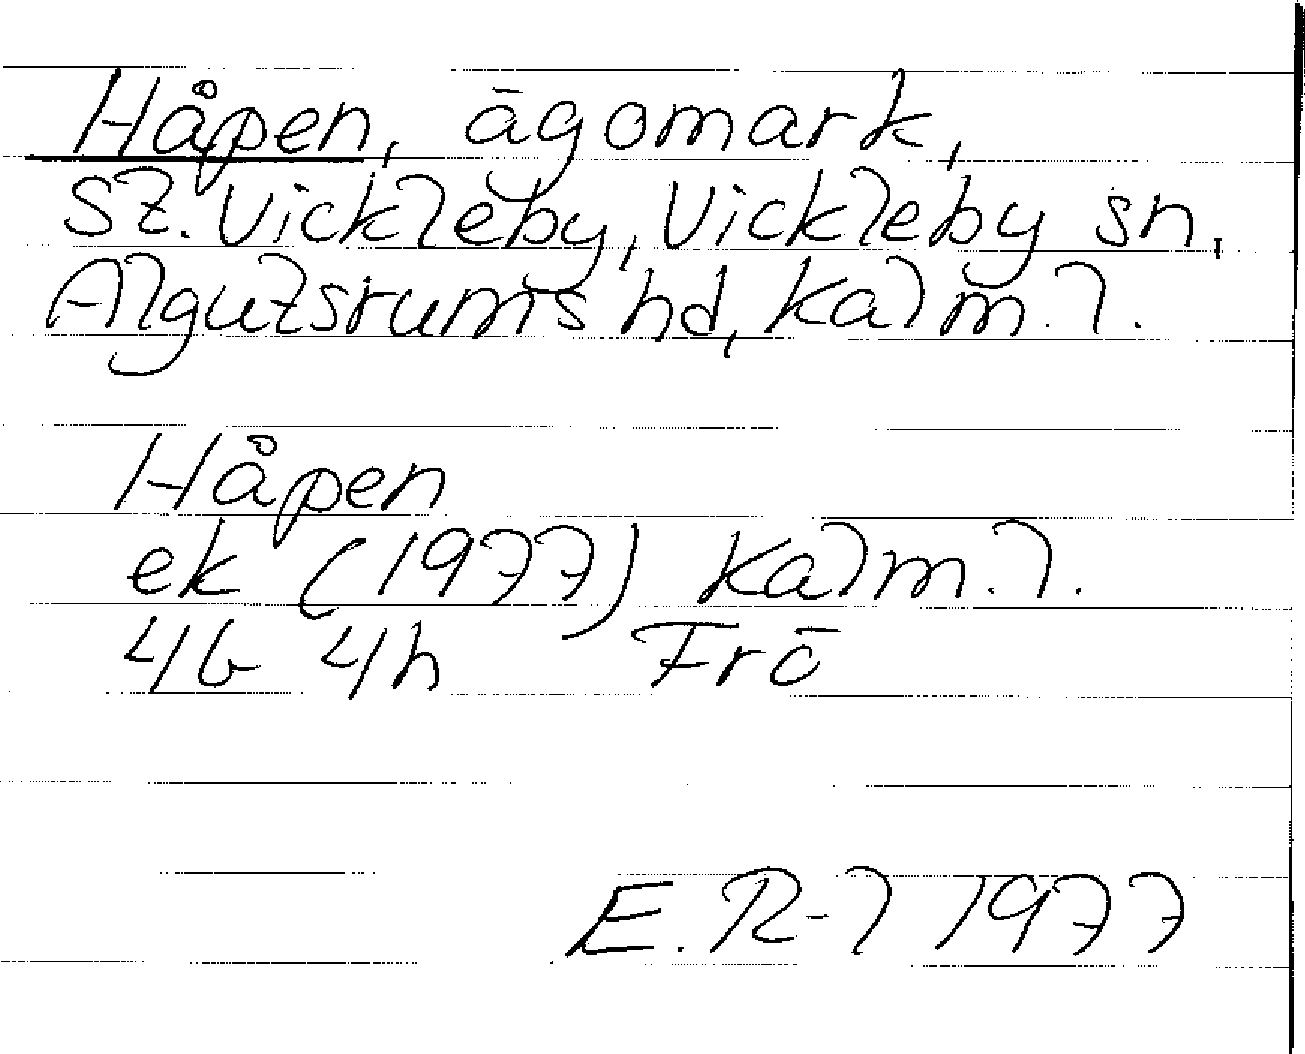 Håpen, ägomark,
St. Vickleby, Vickleby sn,
Algutsrums hd, Kalm. l.
Håpen
ek (1977) Kalm. l.
4G 4h Frö
E. R-l 1977